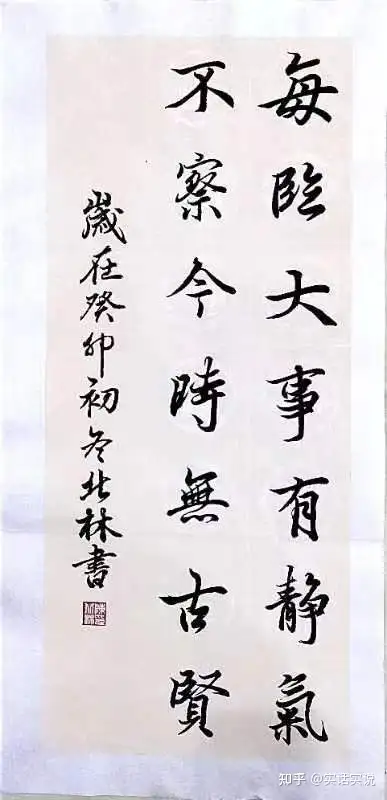 每臨大事有静氣
不察今時無古賢
歲在癸卯初冬北林書
知乎 @实话实况